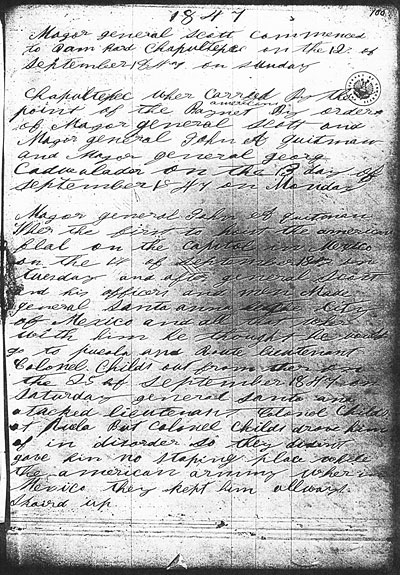 1847
100.
Magor general Scott Commenced
to Bam bard Chapultepec on the 12 of
September 1847 on Sunday
Chapultepec wher Carried by the
americans
point of the Baynet By orders
of Magor general Scott and
Magor general John A Quitman
and Magor general georg
Cadwalader on the 13 day of
September 1847 on Monday
Magor general John A Quitman
Wher the first to hoist the american
flal on the Capitol in Mexico
on the 14 of September 1847 on
tuesday and after general Scott
and his officers and men Made
general Santa anna City
of Mexico and all the
with him he thought he would
go to puebla and Route lieutenant
Colonel Childs out from ther on
the 25 of September 1847 on
Saturday general santa ana
atacked lieutenant Colonel Childs
at Puebla But Colonel Childs drove him
of in disorder so they diden't
gave him no stoping place while
the american arming wher in
Mexico they kept him allways
Shaird up